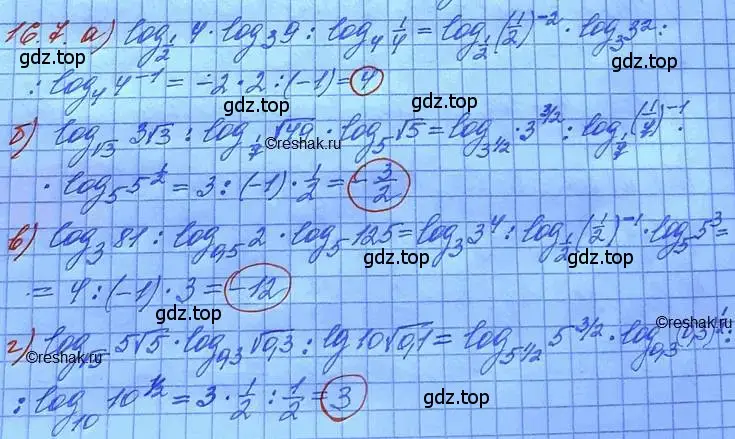 16.7. а) log_{1/2} 4 · log_3 9 : log_4 1/4 = log_{1/2} (1/2)^{-2} · log_3 3^2 :
gdz.top gdz.top
: log_4 4^{-1} = -2 · 2 : (-1) = 4
gdz.top
б) log_{√3} 3√3 : log_{1/7} √49 · log_5 √5 = log_{3^{1/2}} · 3^{3/2} : log_{1/7} (1/7)^{-1} ·
©reshak.ru
· log_5 5^{1/2} = 3 : (-1) · 1/2 = -3/2
gdz.top gdz.top
в) log_3 81 : log_{0,5} 2 · log_5 125 = log_3 3^4 : log_{1/2} (1/2)^{-1} · log_5 5^3 =
gdz.top
= 4 : (-1) · 3 = -12
©reshak.ru
gdz.top gdz.top
г) log_{√5} 5√5 · log_{0,3} √0,3 : lg 10√0,1 = log_{5^{1/2}} 5^{3/2} · log_{0,3} (0,3)^{1/2} :
©reshak.ru
: log_{10} 10^{1/2} = 3 · 1/2 : 1/2 = 3
gdz.top gdz.top